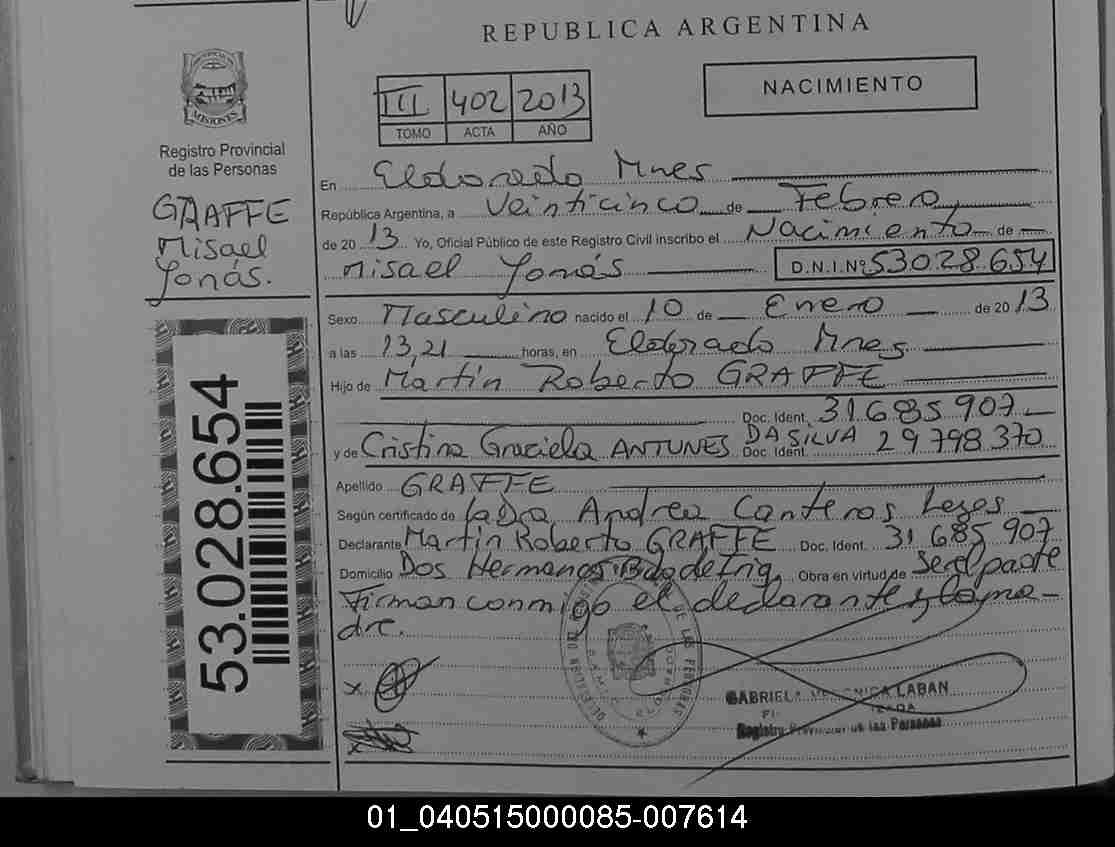 REPUBLICA ARGENTINA
PROVINCIA DE
MISIONES
Registro Provincial
de las Personas
GRAFFE
Misael
Jonás.
53.028.654
III 402 2013
TOMO ACTA AÑO
NACIMIENTO
En Eldorado Mnes
República Argentina, a Veinticinco de Febrero
de 2013 Yo, Oficial Público de este Registro Civil inscribo el Nacimiento de
Misael Jonás D.N.I.Nº 53028.654
Sexo Masculino nacido el 10 de Enero de 2013
a las 13,21 horas, en Eldorado Mnes
Hijo de Martín Roberto GRAFFE
Doc. Ident. 31.685.907
y de Cristina Graciela ANTUNES DA SILVA Doc. Ident. 29.798.370
Apellido GRAFFE
Según certificado de la Dra Andrea Canteros
Declarante Martín Roberto GRAFFE Doc. Ident. 31.685.907
Domicilio Dos Hermanas Obra en virtud de Ser el padre
Firman conmigo el declarante y la ma-
dre.
x
x
GABRIELA VERONICA LABAN
Registro Provincial de las Personas
01_040515000085-007614